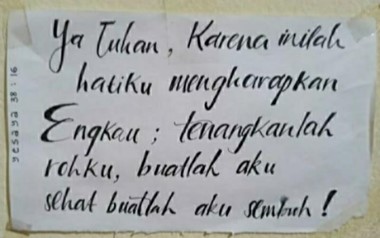 Ya Tuhan, Karena inilah
hatiku mengharapkan
Engkau; tenangkanlah
rohku, buatlah aku
sehat buatlah aku sembuh!
yesaya 38:16